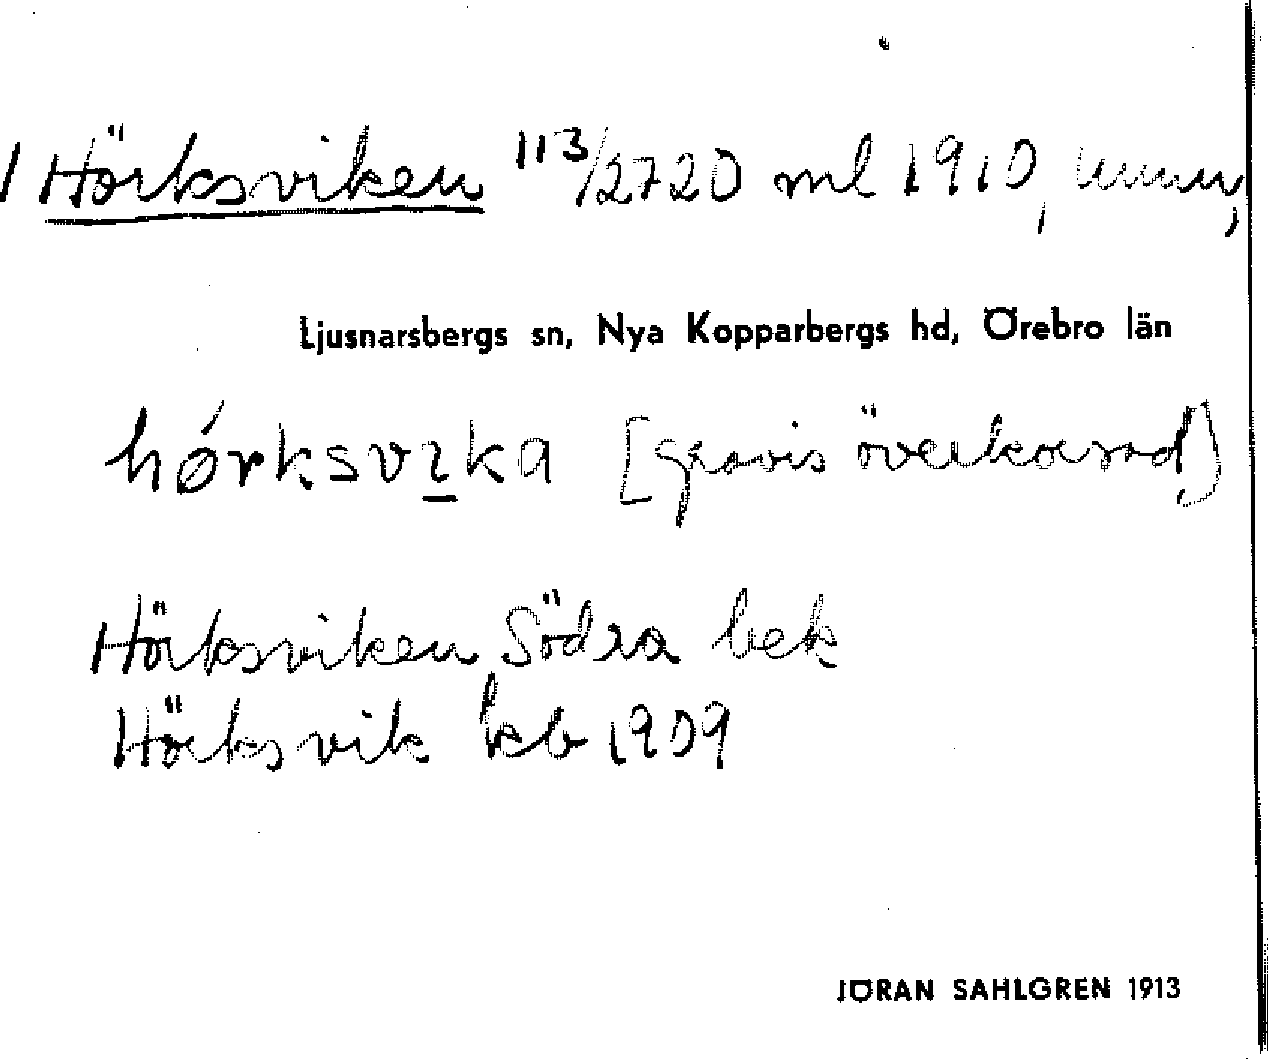 1 Hörksviken 113/2720 ml 1910,
Ljusnarsbergs sn, Nya Kopparbergs hd, Örebro län
hǿrksvı̲ka [gravis överkorsad]
Hörksviken Södra bek
Hörksvik kb 1909
JÖRAN SAHLGREN 1913